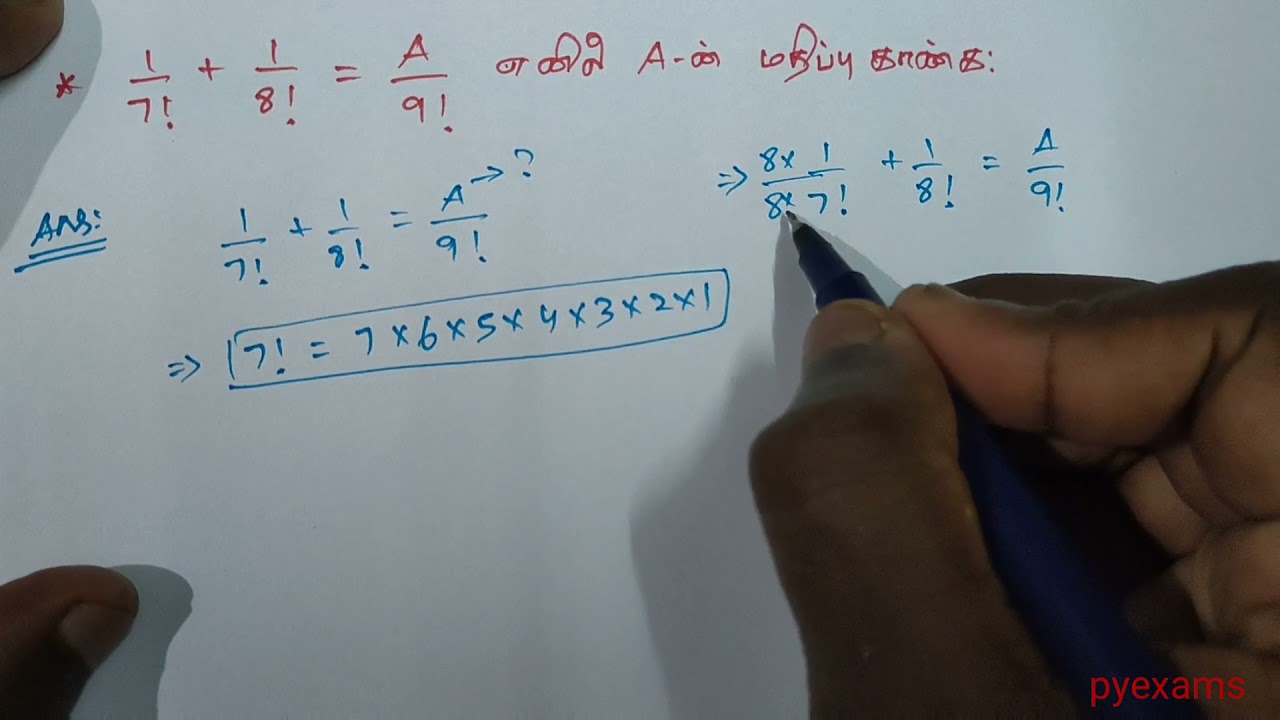 * 1/7! + 1/8! = A/9! எனில் A-ன் மதிப்பு காண்க:
Ans:
1/7! + 1/8! = A/9! → ?
⇒ 7! = 7 × 6 × 5 × 4 × 3 × 2 × 1
⇒ 8 × 1/8 × 7! + 1/8! = A/9!
pyexams